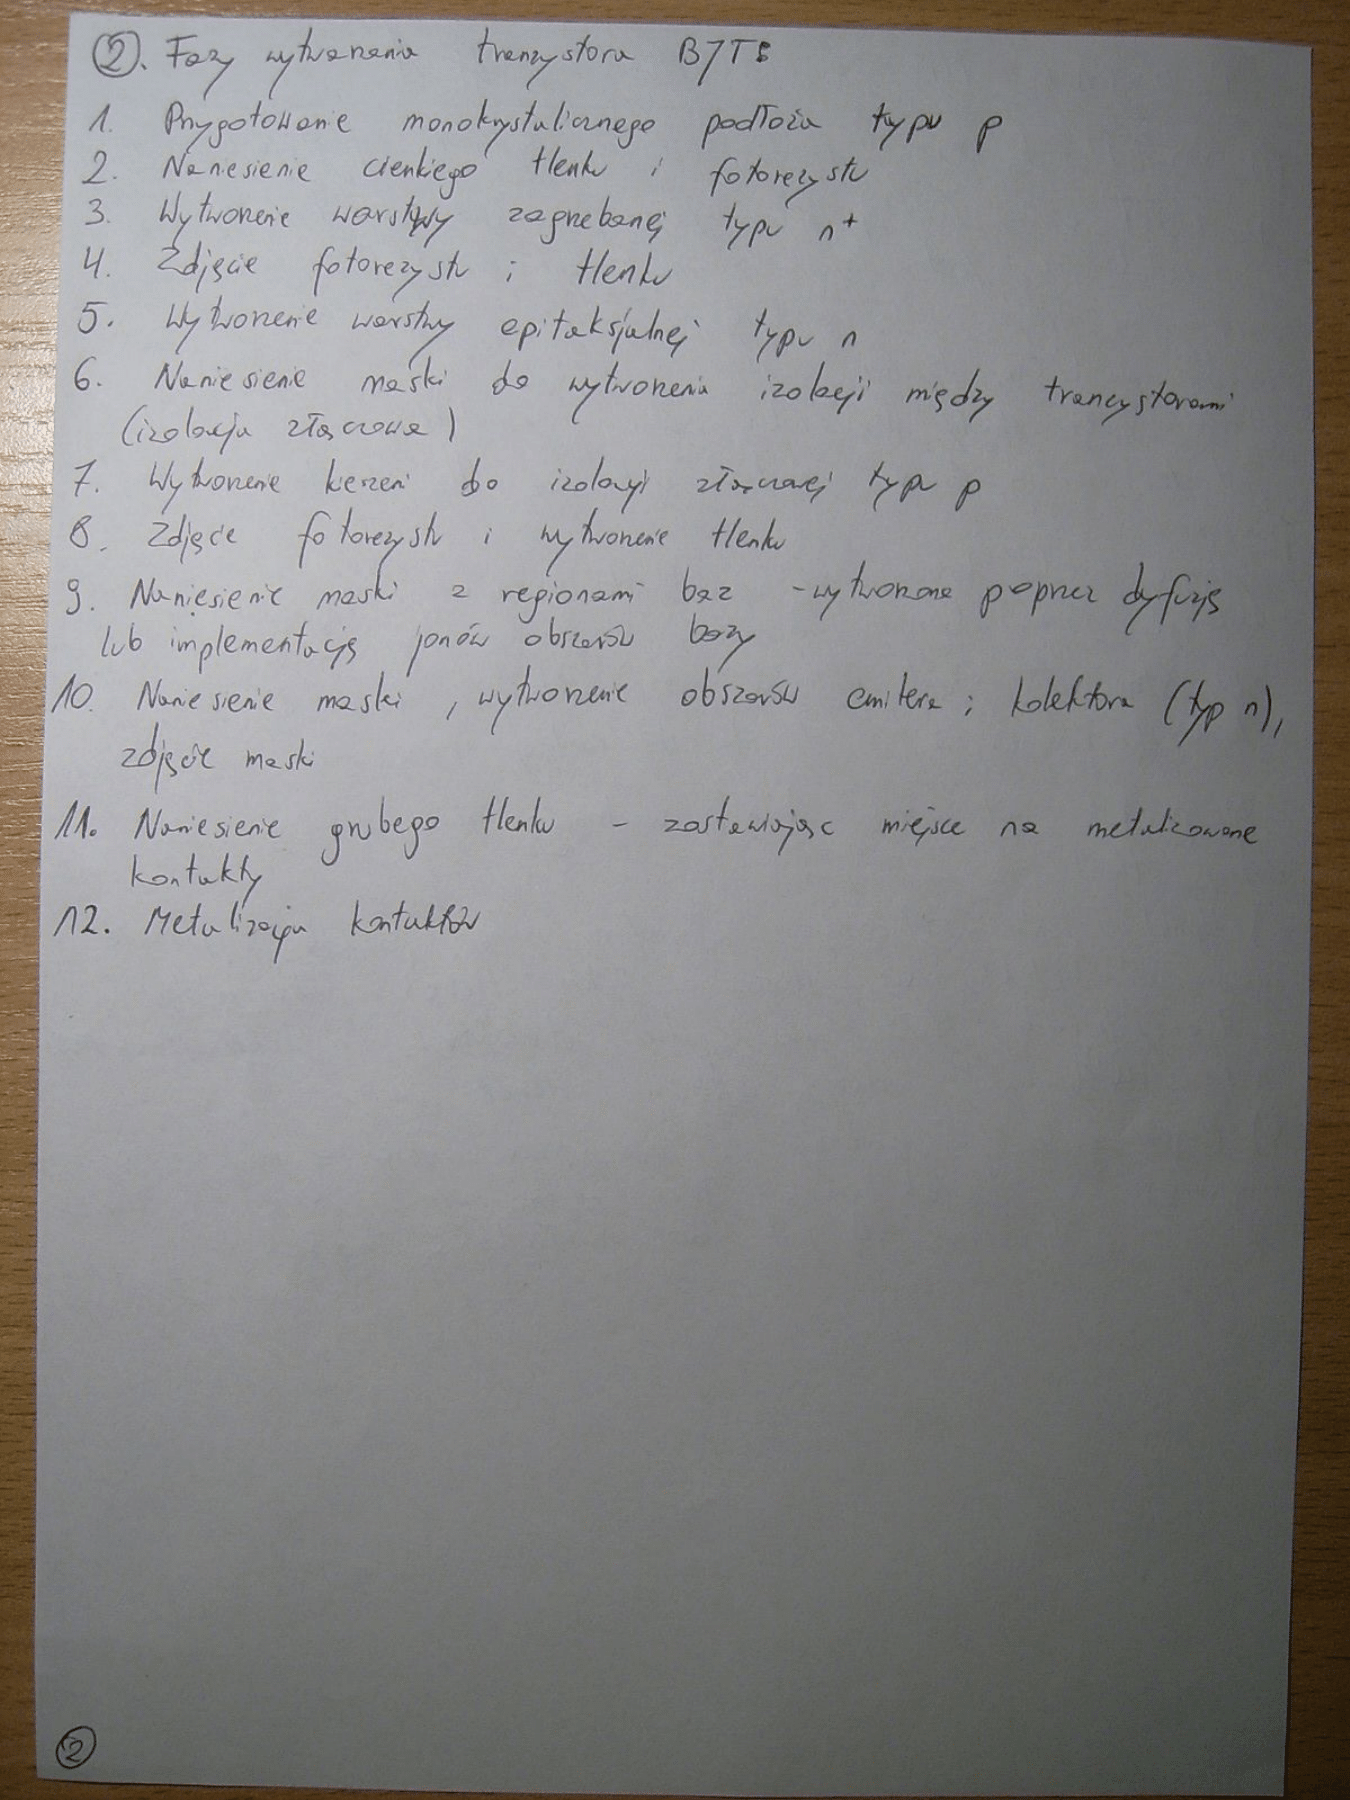 ②. Fazy wytwarzania tranzystora BJT
1. Przygotowanie monokrystalicznego podłoża typu p
2. Naniesienie cienkiego tlenku i fotorezystu
3. Wytworzenie warstwy zagrzebanej typu n⁺
4. Zdjęcie fotorezystu i tlenku
5. Wytworzenie warstwy epitaksjalnej typu n
6. Naniesienie maski do wytworzenia izolacji między tranzystorami
(izolacja złączowa)
7. Wytworzenie kieszeni do izolacji złączowej typu p
8. Zdjęcie fotorezystu i wytworzenie tlenku
9. Naniesienie maski z regionami baz - wytworzone poprzez dyfuzję
lub implementację jonów obszarów bazy
10. Naniesienie maski, wytworzenie obszarów emitera i kolektora (typ n),
zdjęcie maski
11. Naniesienie grubego tlenku - zostawiając miejsce na metalizowane
kontakty
12. Metalizacja kontaktów
②